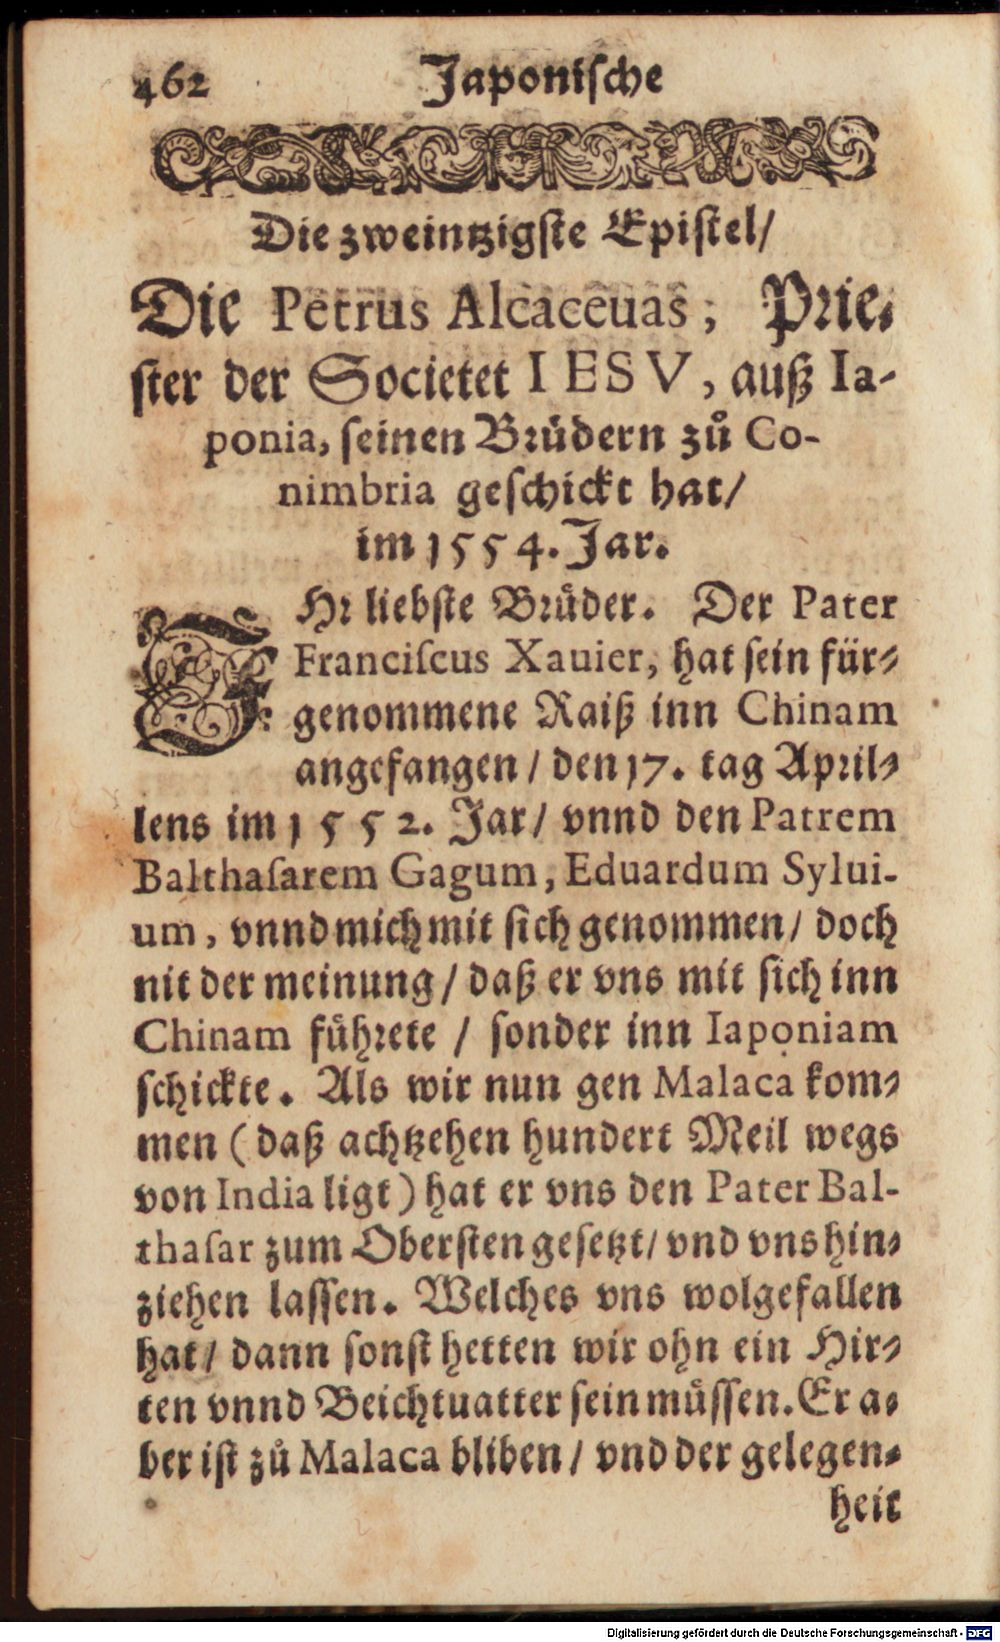 462 Japoniſche
Die zweintzigſte Epiſtel/
Die Petrus Alcaceuas, Prie⸗
ſter der Societet IESV, auß Ia-
ponia, ſeinen Bruͤdern zuͦ Co-
nimbria geſchickt hat/
im 1554. Jar.
IHr liebſte Bruͤder. Der Pater
Franciſcus Xauier, hat ſein fuͤr⸗
genommene Raiß inn Chinam
angefangen / den 17. tag April⸗
lens im 1552. Jar/ vnnd den Patrem
Balthaſarem Gagum, Eduardum Sylui-
um, vnnd mich mit ſich genommen/ doch
nit der meinung/ daß er vns mit ſich inn
Chinam fuͤhrete / ſonder inn Iaponiam
ſchickte. Als wir nun gen Malaca kom⸗
men (daß achtzehen hundert Meil wegs
von India ligt) hat er vns den Pater Bal-
thaſar zum Oberſten geſetzt/ vnd vns hin⸗
ziehen laſſen. Welches vns wolgefallen
hat/ dann ſonſt hetten wir ohn ein Hir⸗
ten vnnd Beichtuatter ſein muͤſſen. Er a⸗
ber iſt zuͦ Malaca bliben/ vnd der gelegen⸗
heit
Digitalisierung gefördert durch die Deutsche Forschungsgemeinschaft - DFG